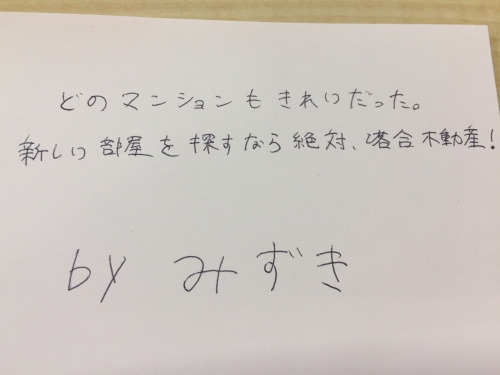 どのマンションもきれいだった。
新しい部屋を探すなら絶対、落合不動産!
by みずき